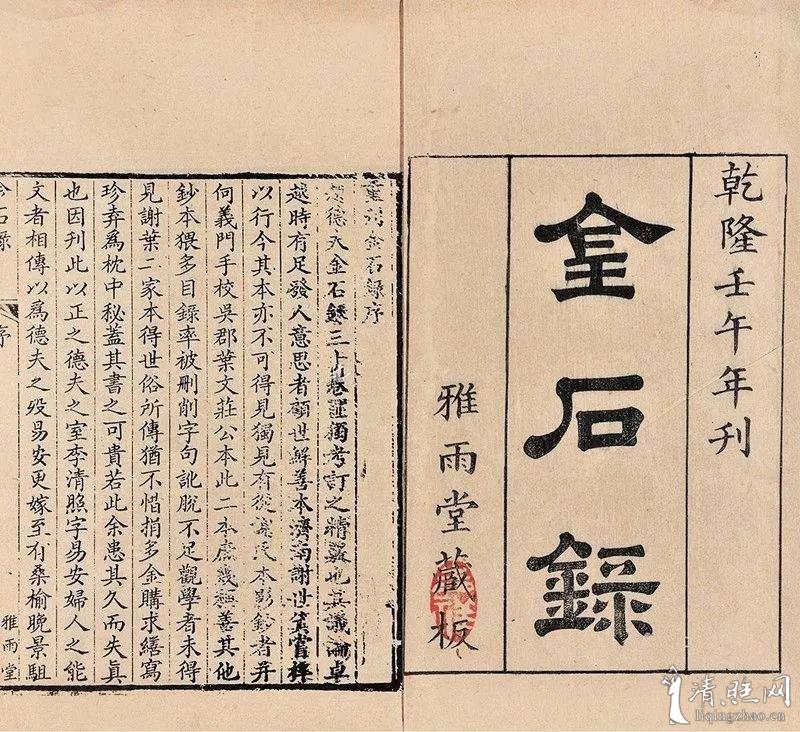 乾隆壬午年刊
金石錄
雅雨堂藏板
重刊金石錄序
趙德夫金石錄三十卷匪獨考訂之精覈也其議論卓
越時有足發人意思者顧世鮮善本濟南謝世箕嘗梓
以行今其本亦不可得見獨見有從謝氏本影鈔者并
何義門手校吳郡葉文莊公本此二本庶幾稱善其他
鈔本猥多目錄率被刪削字句訛脫不足觀學者未得
見謝葉二家本得世俗所傳猶不惜捐多金購求繕寫
珍弆爲枕中秘蓋其書之可貴若此余患其久而失眞
也因刊此以正之德夫之室李清照字易安婦人之能
文者相傳以爲德夫之歿易安更嫁至有桑榆晚景駔
金石錄
序
雅雨堂
清照网
liqingzhao.cn